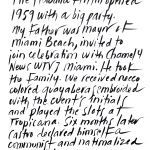 The Habana Hilton opened
1959 with a big party.
My Father was mayor of
Miami Beach, invited to
join celebration with Channel 4
News WTVJ Miami. He took
the family. We received nucco
colored guayaberas embroided
with the event's initials
and played the slots at
Tropicana. Six months later
Castro declared himself a
communist, and nationalized